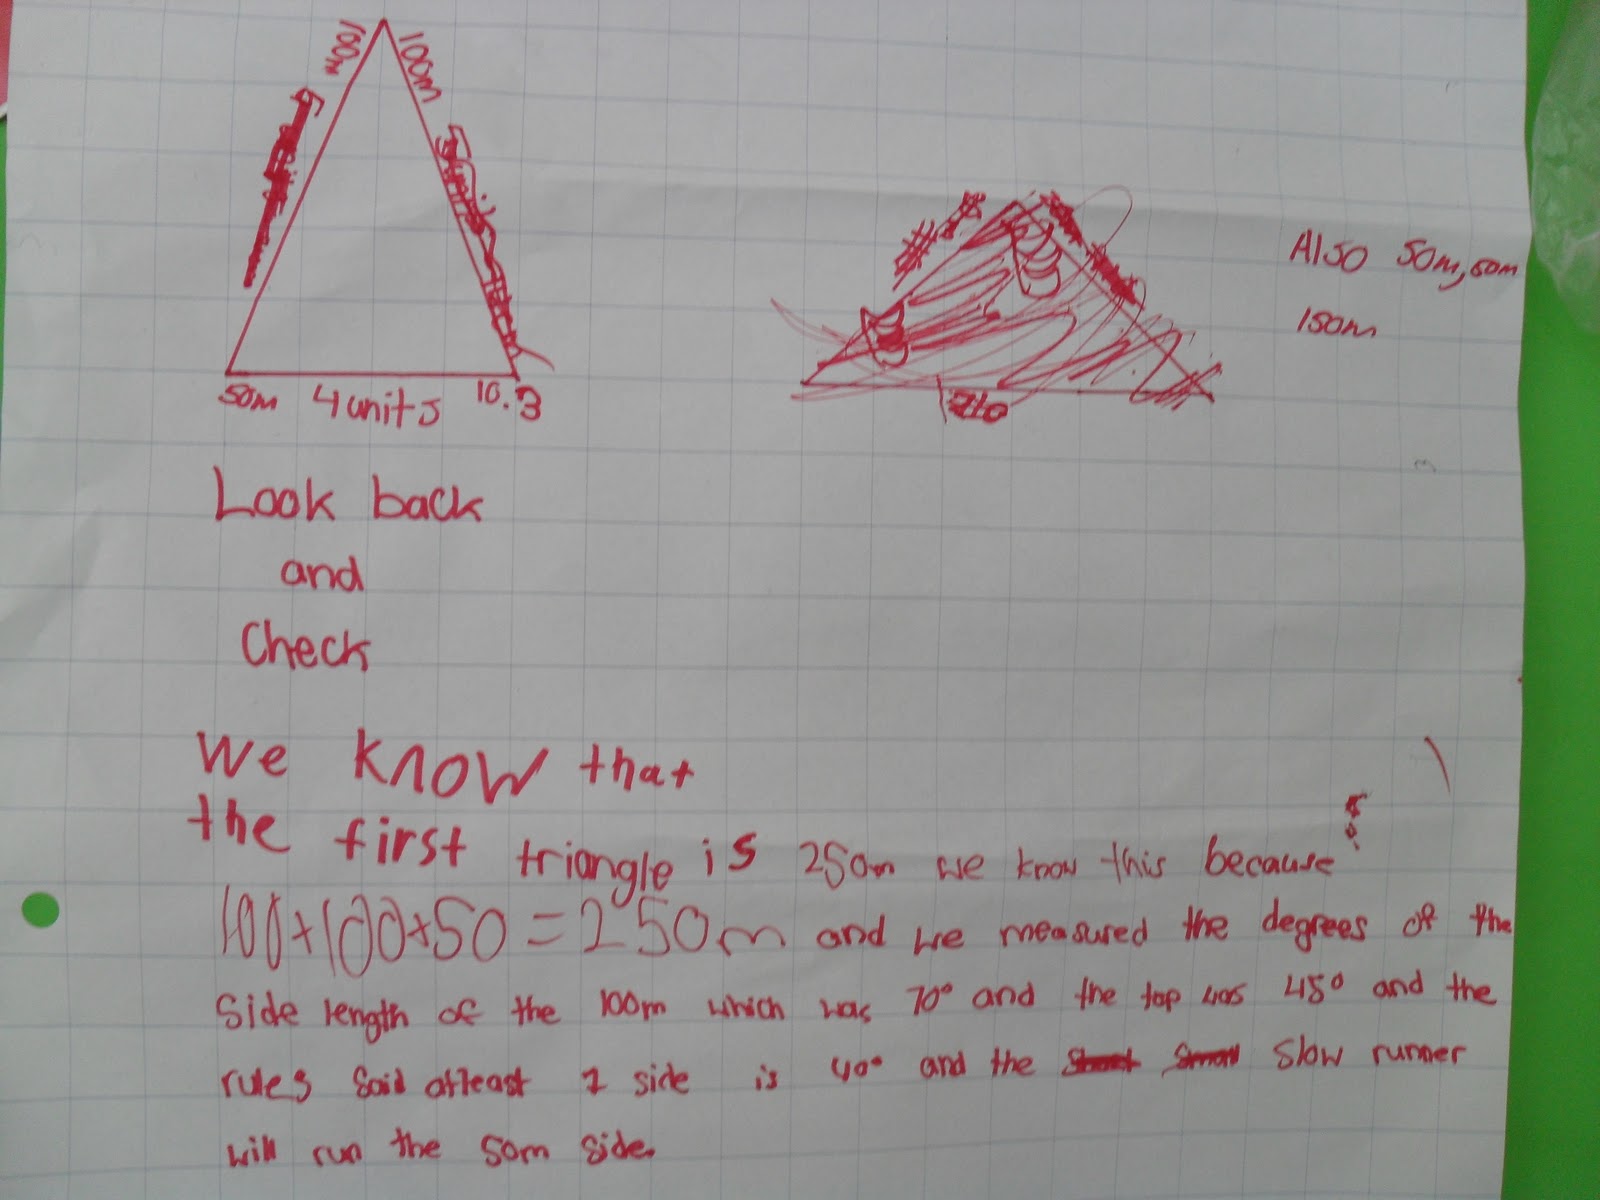 100m
100m
50m 4 units 10.3
Also 50m, 50m
150m
Look back
and
Check
We know that
the first triangle is 250m we know this because
100+100+50=250m and we measured the degrees of the
Side length of the 100m which was 70° and the top was 45° and the
rules said atleast 1 side is 40° and the slow runner
will run the 50m side.